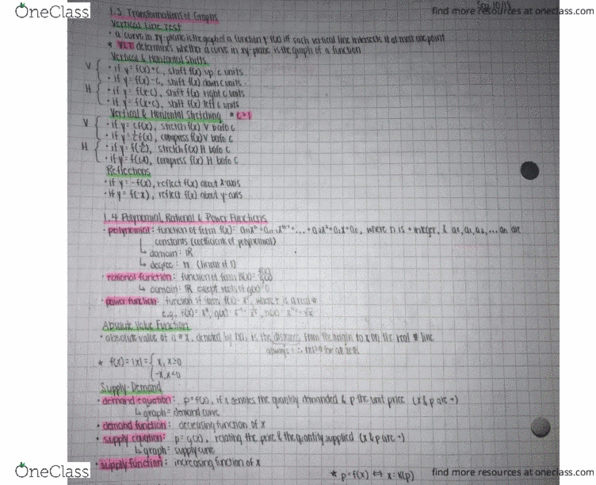 OneClass
find more resources at oneclass.com
Sep 10/13
1.3 Transformations of Graphs
Vertical Line Test
• a curve in xy-plane is the graph of a function y f(x) iff each vertical line intersects it at most one point
* VLT determines whether a curve in xy-plane is the graph of a function
Vertical & Horizontal Shifts
V • if y=f(x)+c, shift f(x) up c units
• if y=f(x)-c, shift f(x) down c units
H • if y=f(x-c), shift f(x) right c units
• if y=f(x+c), shift f(x) left c units
Vertical & Horizontal Stretching * c>1
V • if y=cf(x), stretch f(x) V bafo c
• if y= f(x), compress f(x) V bafo c
H • if y=f( ), stretch f(x) H bafo c
• if y=f( ), compress f(x) H bafo c
Reflections
• if y=-f(x), reflect f(x) about x-axis
• if y=f(-x), reflect f(x) about y-axis
1.4 Polynomial, Rational & Power Functions
• polynomial: function of form f(x)= , where n is + integer, &
constants (coefficients of polynomial)
↳ domain: ℝ
↳ degree: n (linear if 1)
• rational function: function of form
↳ domain: ℝ except
• power function: function of form f(x)= , where r is a real #
e.g.
Absolute Value Function
• absolute value of a # x, denoted by |x|, is the distance from the origin to x on the real # line
always
* f(x)=|x|= { x, x≥0
-x, x<0
Supply-Demand
• demand equation: p=f(x), if x denotes the quantity demanded & p the unit price (x & p are +)
↳ graph = demand curve
• demand function: decreasing function of x
• supply equation: p=g(x), relating the price & the quantity supplied (x & p are +)
↳ graph: supply curve
• supply function: increasing function of x
* p=f(x) ⇔ x=
OneClass
find more resources at oneclass.com